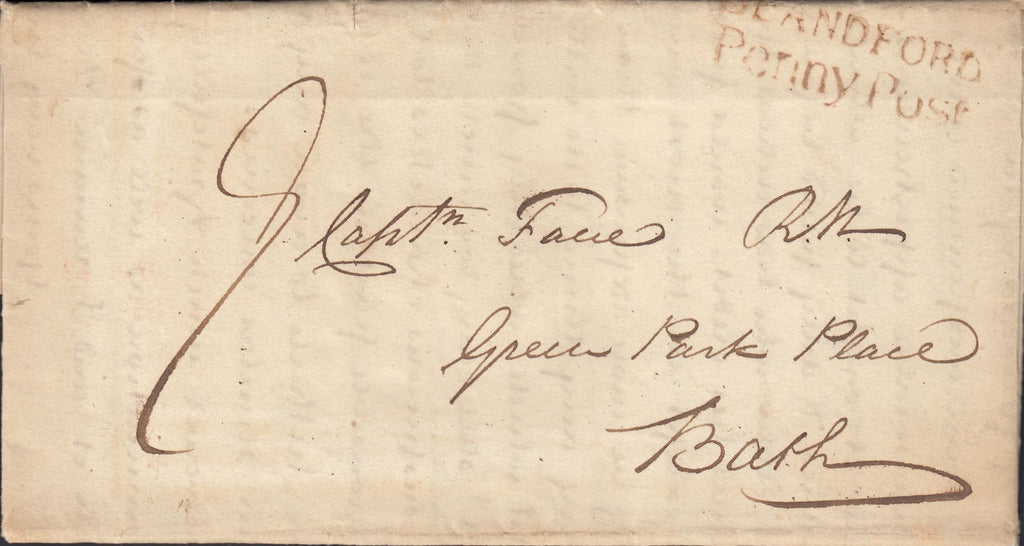 BLANDFORD
Penny Post
Captn. Faue R.N.
Green Park Place
Bath